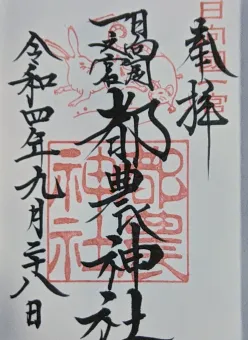 奉拝
日向国一宮
日向国
一之宮
都農神社
都農
神社
令和四年九月二十八日